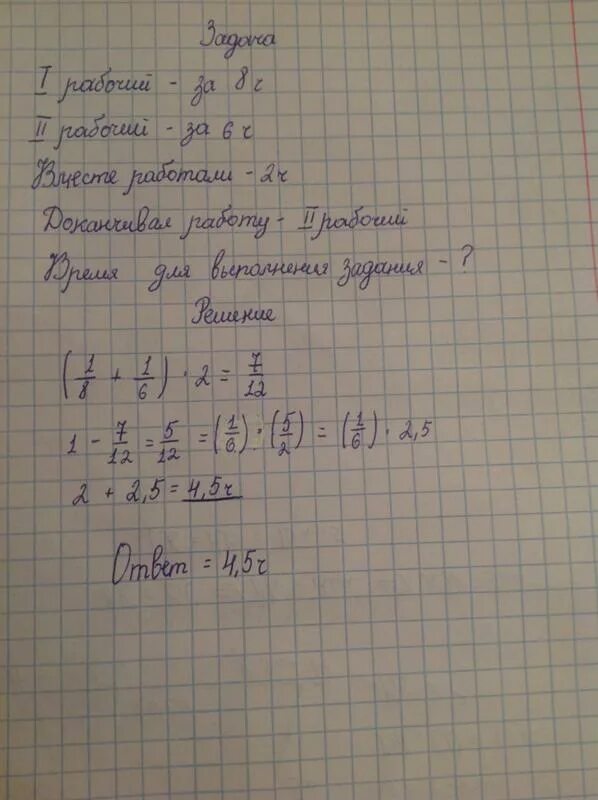 Задача
I рабочий - за 8 ч
II рабочий - за 6 ч
Вместе работали - 2ч
Доканчивал работу - II рабочий
Время для выполнения задания - ?
Решение
(1/8 + 1/6) · 2 = 7/12
1 - 7/12 = 5/12 = (1/6) · (5/2) = (1/6) · 2,5
2 + 2,5 = 4,5ч
Ответ = 4,5ч